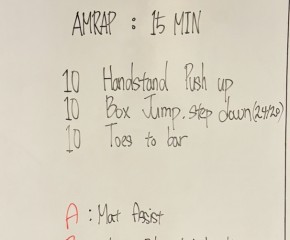 AMRAP : 15 MIN
10 Handstand Push up
10 Box Jump. step down (24/20)
10 Toes to bar
A : Mat Assist